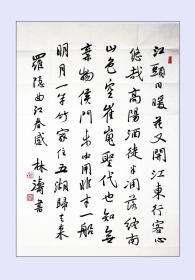 江頭日暖花又開江東行客心
悠哉高陽酒徒半凋落終南
山色空崔嵬聖代也知無
棄物侯門未必用非才一船
明月一竿竹家住五湖歸去來
羅隱曲江春感 林濤書